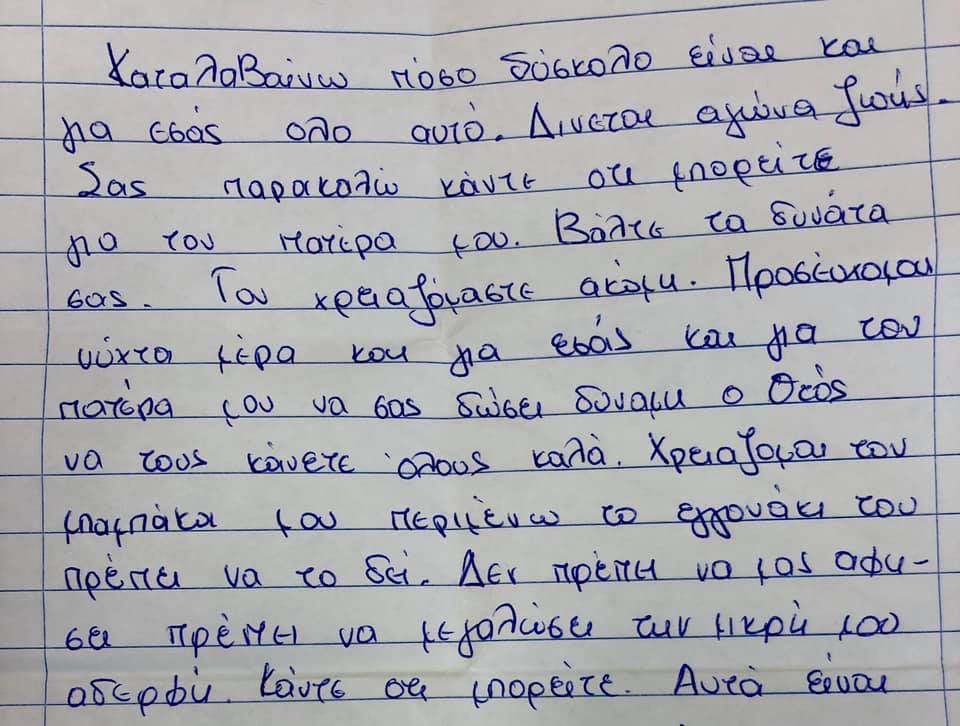 Καταλαβαίνω πόσο δύσκολο είναι και
για εσάς ολο αυτό. Δινεται αγώνα ζωής.
Σας παρακαλώ κάντε οτι μπορείτε
για τον πατέρα μου. Βάλτε τα δυνάτα
σας. Τον χρειαζόμαστε ακόμη. Προσέυχομαι
νύχτα μέρα και για εσάς και για τον
πατέρα μου να σας δώσει δυναμη ο Θεός
να τους κάνετε όλους καλά. Χρειαζομαι τον
μπαμπάκα μου περιμένω το εγγονάκι του
πρέπει να το δεί. Δεν πρέπει να μας αφη-
σει πρέπει να μεγαλώσει την μικρή μου
αδερφή. Κάντε οτι μπορείτε. Αυτά είναι